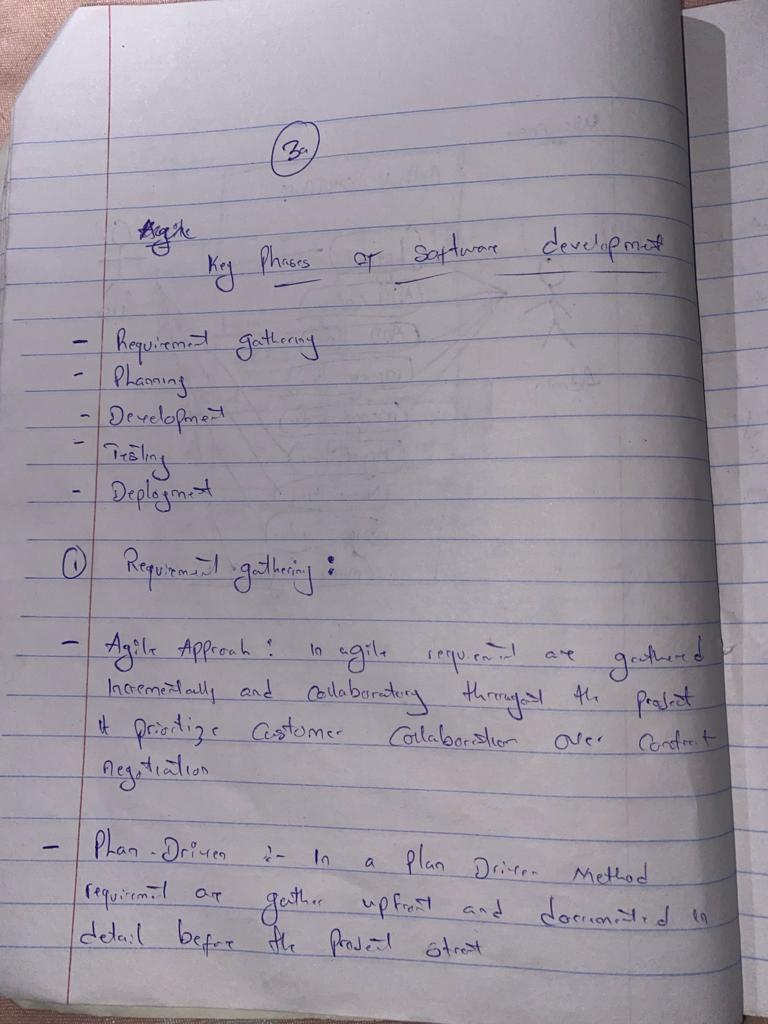 3a
Agile
Key Phases of Software development
- Requirement gathering
- Planning
- Development
- Testing
- Deployment
① Requirement gathering :
- Agile Approah : In agile requirement are gathered
Incrementally and Collaboratory througout the project
It prioritize Customer Collaboration over Contract
negotiation
- Plan-Driven :- In a Plan Driven Method
requirement are gather upfront and documented in
detail before the Project start